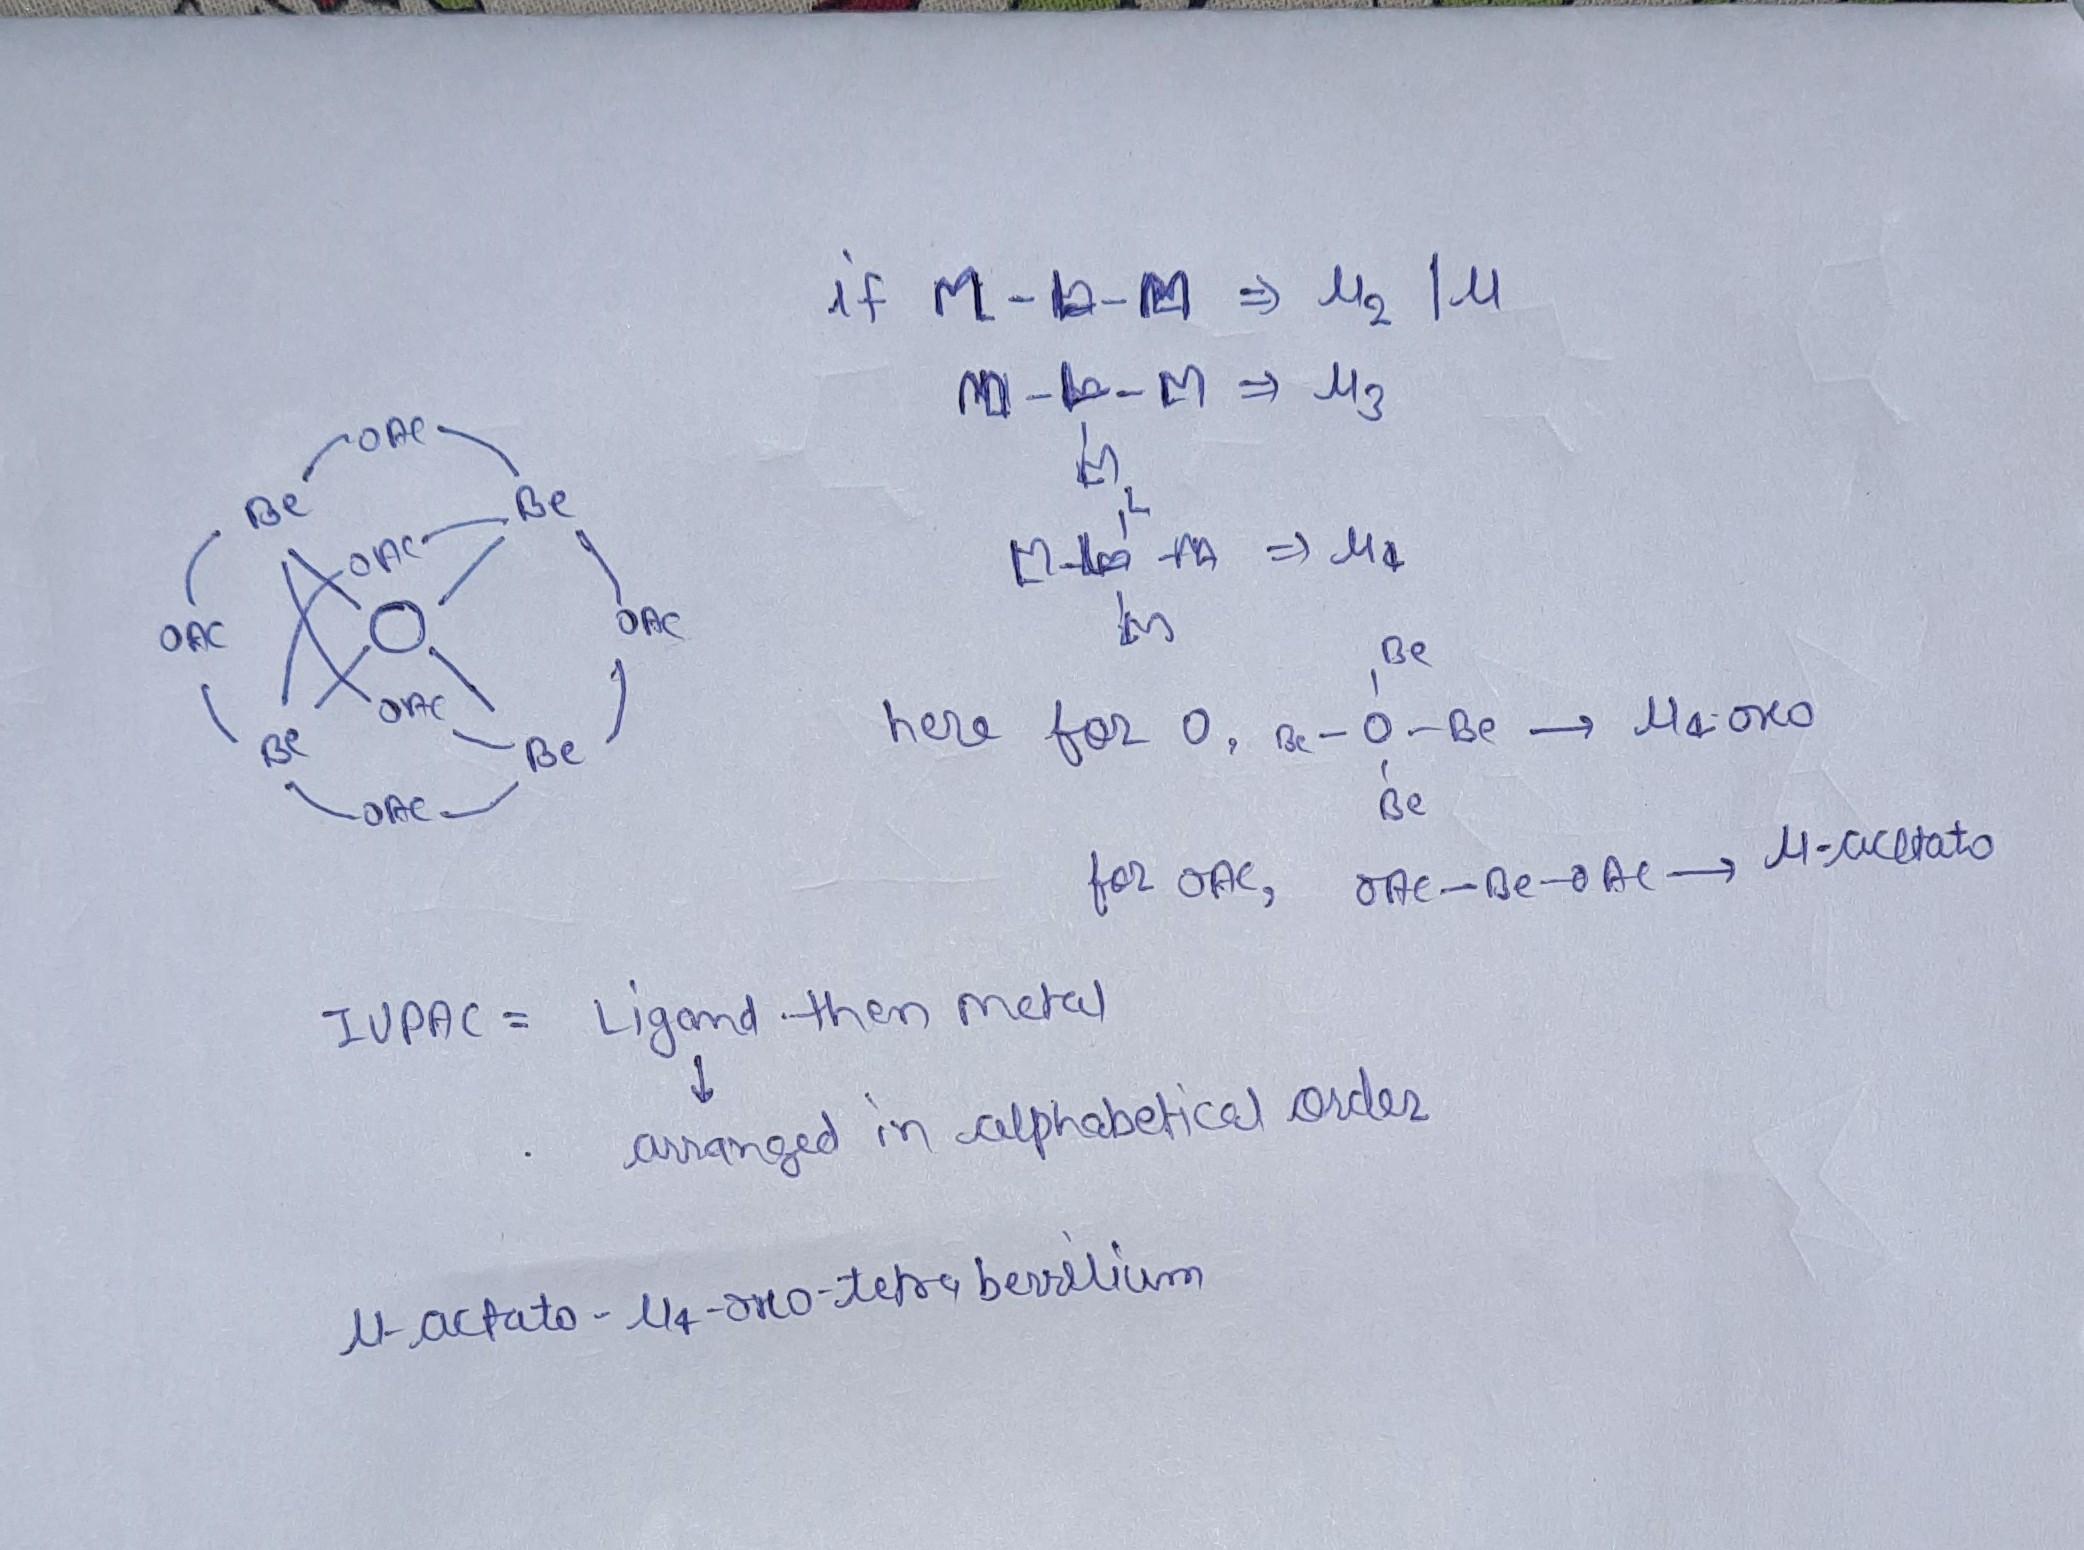 if M - L - M ⇒ μ2 / μ
M - L - M ⇒ μ3
M
L
M - L - M ⇒ μ4
M
OAC
Be Be
OAC
OAC O OAC
OAC
Be Be
OAC
Be
here for O, Be - O - Be → μ4-oxo
Be
for OAC, OAC - Be - OAC → μ-acetato
IUPAC = Ligand then metal
↓
arranged in alphabetical order
μ-actato - μ4-oxo-tetra berrilium